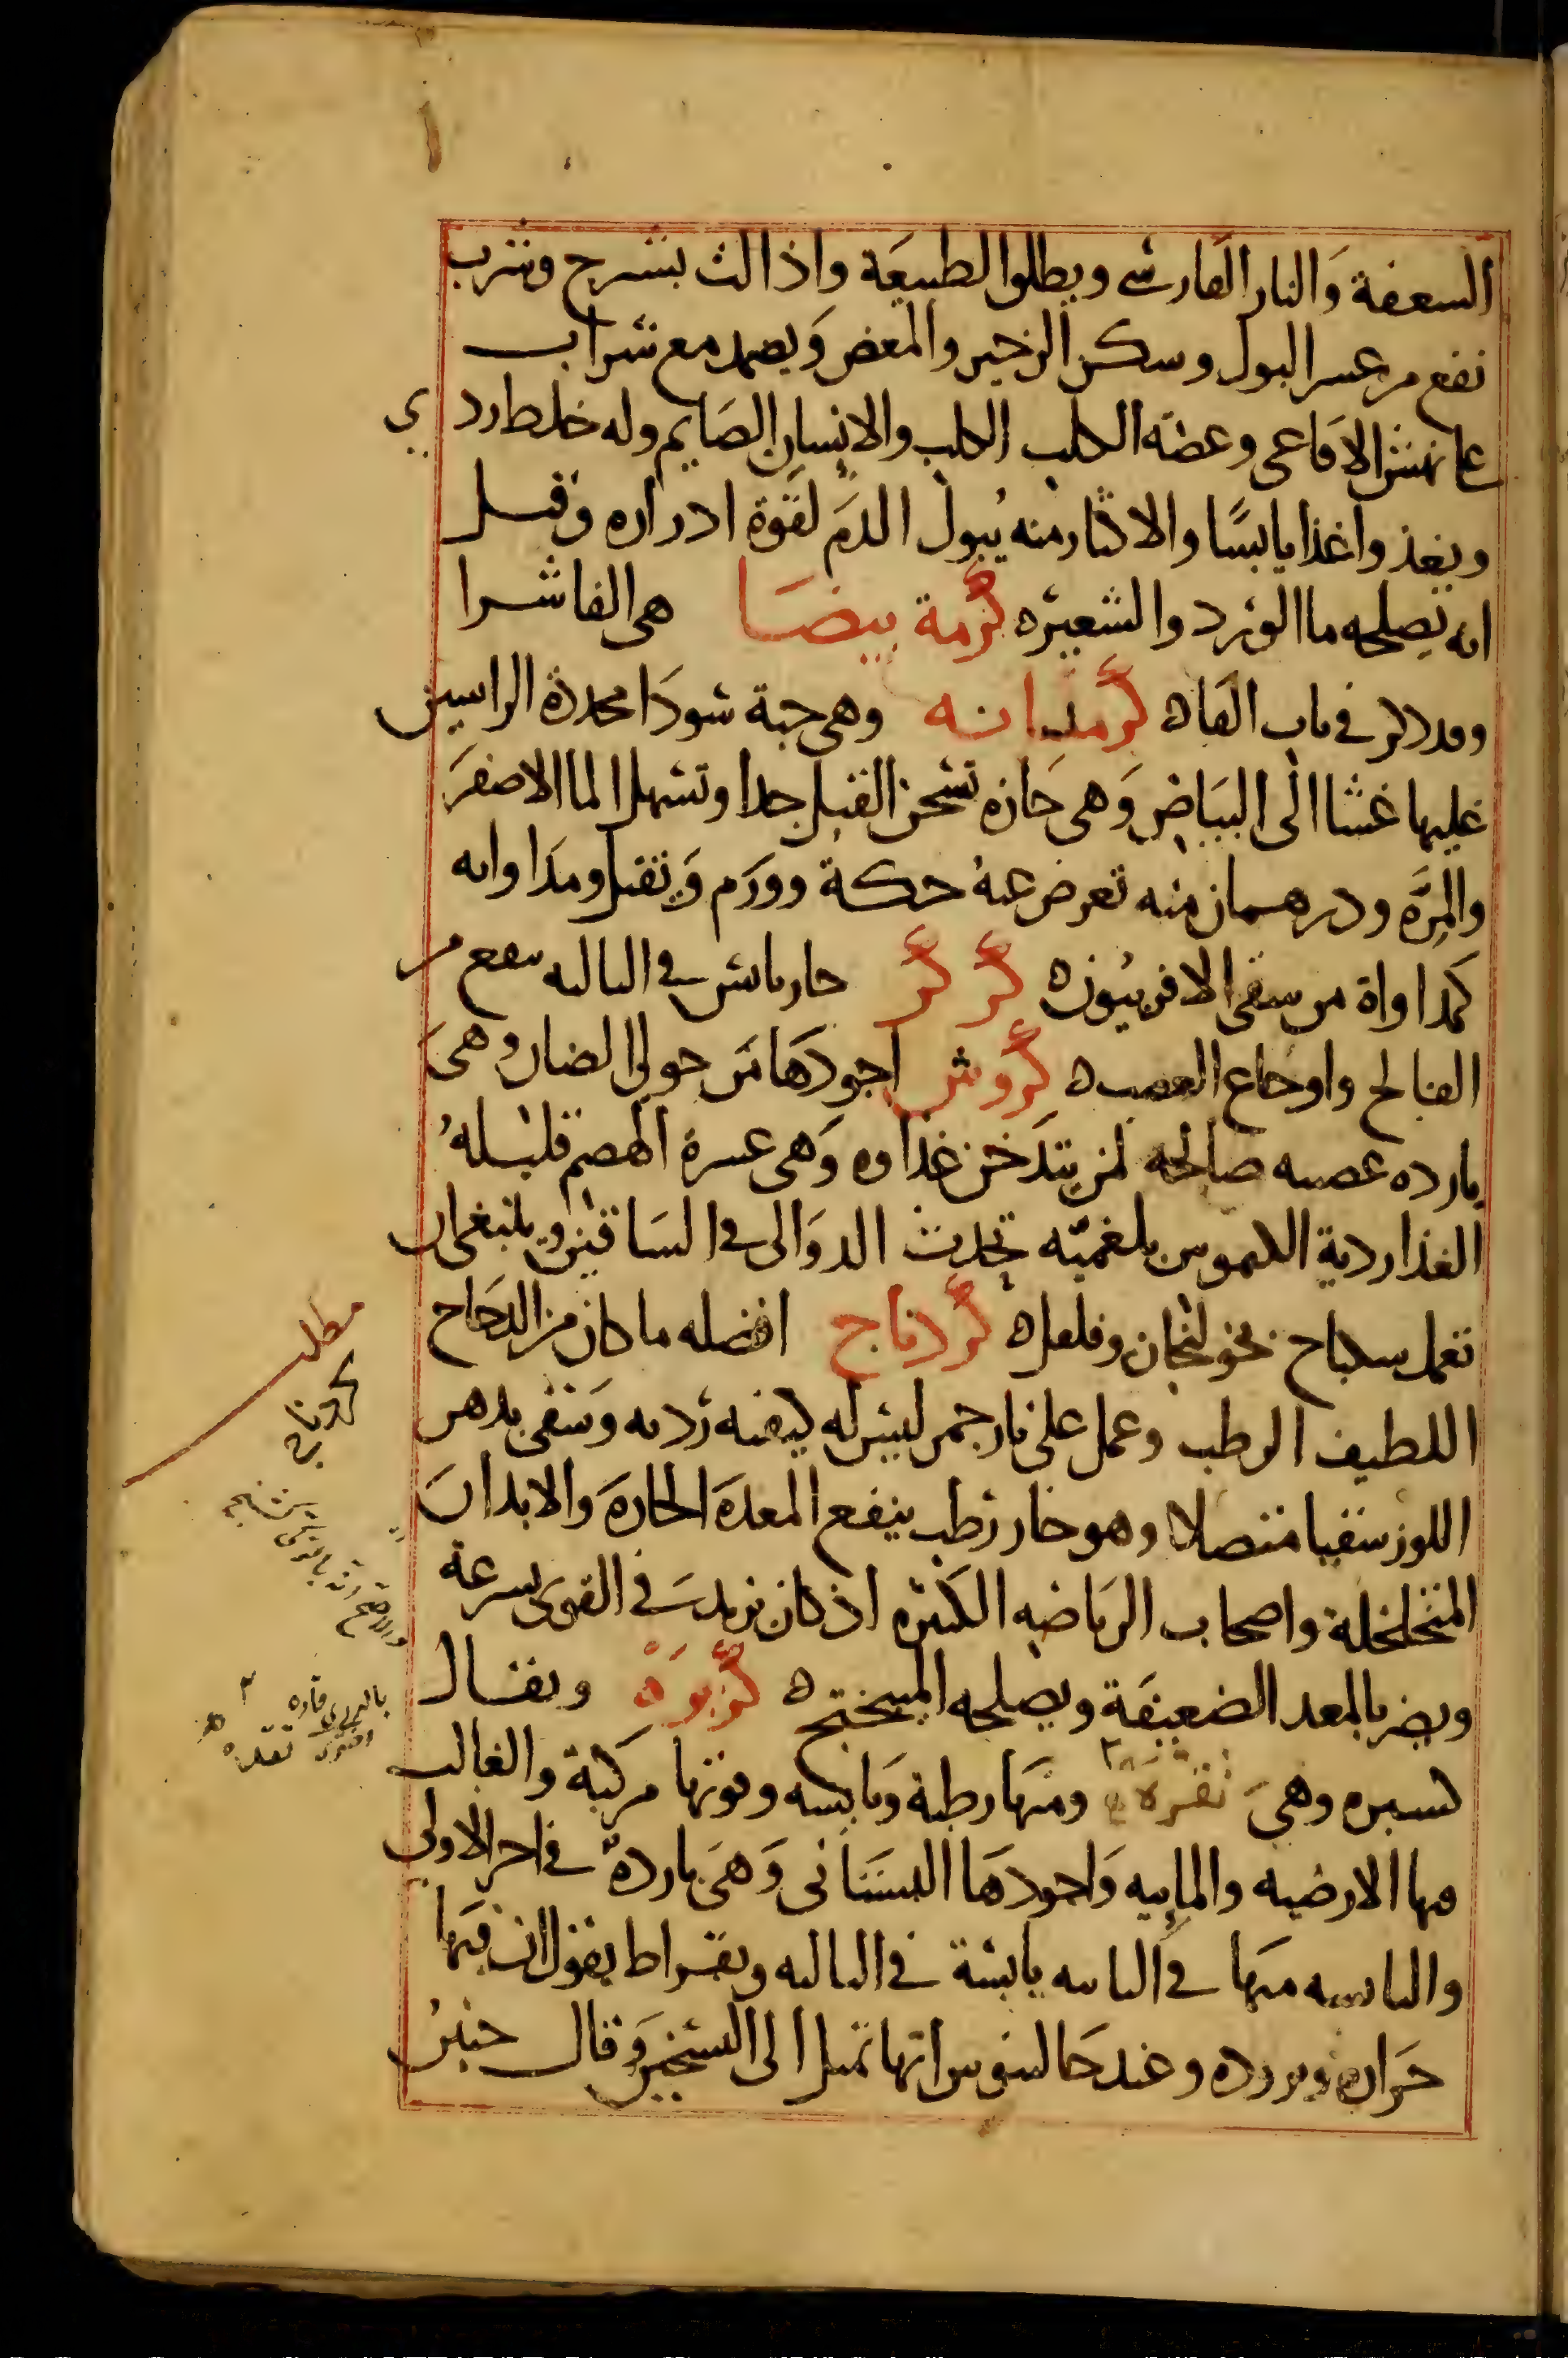 السعفة والنار الفارسي ويطلوا الطبيعة واذا لت بشرج وشرب
نفع من عسر البول وسكن الزحير والمغص ويضمد مع شراب
على نهش الافاعى وعضه الكلب الكلب والانسان الصايم وله خلط ردي
ويغذوا غذا يابسًا والاكثار منه يُبول الدمَ لقوة ادراره وقيل
انه يصلحه ما الورد والشعيره كرمة بيضا هى الفاشرا
وقد ذكر في باب الفاه كرمدانه وهى حبة سودا محددة الراسين
عليها غشا الى البياض وهى حاره تسخن القبل جدا وتسهل الما الاصفر
والمرّه ودرهمان منه تعرض عنهُ حكة وورم ويقتل ومداواته
كمداواة من سقى الافربيون ه كر كر حار يابس في الثالثه ينفع من
الفالج واوجاع العصب ه كروش اجودها من حولي الضان وهى
بارده عصبيه صالحه لمن يتدخن غذاوه وهى عسرة الهضم قليلهُ
الغذا ردية الكيموس بلغميّه تحدث الدوالى في الساقين وينبغى ان
تعمل سكباج بخولنجان وفلفل ه كردناج افضله ما كان من الدجاج
اللطيف الرطب وعمل على نار جمر ليس له كيفيه رديه وسقى بدهن
اللوز سقيا متصلا وهو حار رطب ينفع المعدة الحارة والابدان
المتخلخلة واصحاب الرياضه الكثيره اذ كان يزيد في القوى بسرعة
ويضر بالمعد الضعيفة ويصلحه الميبختج ه كزبرة ويقال
كسبره وهى تقره ومنها رطبة ويابسه وقوتها مركبة والغالب
منها الارضيه والماييه واجودها البستانى وهى باردة في اخر الاولى
واليابسه منها في الثانيه يابسة في الثالثه وبقراط يقول ان فيها
حراره وبروده وعند جالينوس انها تميل الى التسخين وقال حنين
مطلب
كردناج